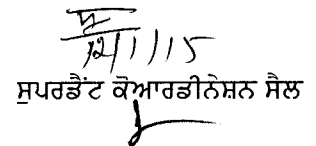 12/1/15
ਸੁਪਰਡੈਂਟ ਕੋਆਰਡੀਨੇਸ਼ਨ ਸੈਲ